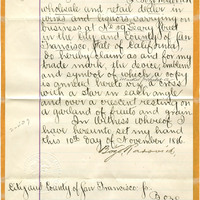 wholesale and retail dealer in
wines and liquors, carrying on
business at No 29 Geary street
in the City and County of San
Francisco, State of California,
do hereby claim as and for my
trade mark, the device, emblem
and symbol of which a copy
is annexed hereto viz: a cross
with a star in each angle
and over a crescent resting on
a garland of fruits and grain
In witness whereof I
have hereunto set my hand
this 10th day of November 1886.
City and County of San Francisco, ss.